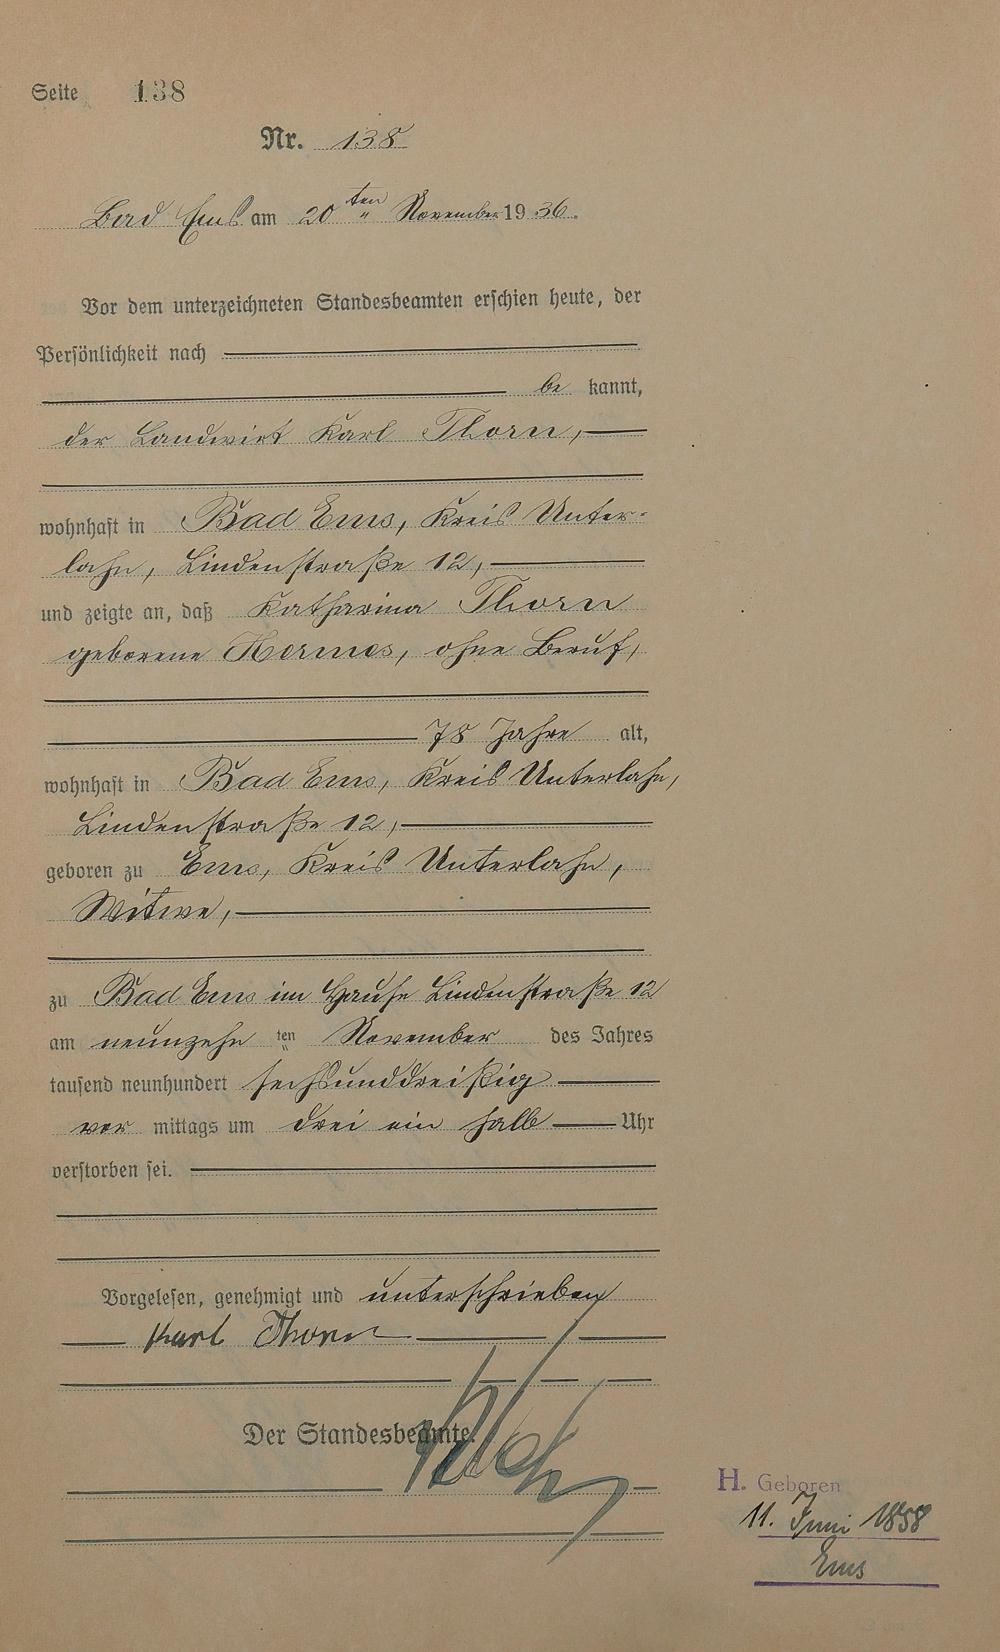 Seite 138
Nr. 138
Bad Ems am 20ten November 1936.
Vor dem unterzeichneten Standesbeamten erschien heute, der
Persönlichkeit nach
be kannt,
der Landwirt Karl Thorn,
wohnhaft in Bad Ems, Kreis Unter-
lahn, Lindenstraße 12,
und zeigte an, daß Katharina Thorn
geborene Hermes, ohne Beruf,
78 Jahre alt,
wohnhaft in Bad Ems, Kreis Unterlahn,
Lindenstraße 12,
geboren zu Ems, Kreis Unterlahn,
Witwe,
zu Bad Ems im Hause Lindenstraße 12
am neunzehn ten November des Jahres
tausend neunhundert sechsunddreißig
vor mittags um drei ein halb Uhr
verstorben sei.
Vorgelesen, genehmigt und unterschrieben
Karl Thorn
Der Standesbeamte.
H. Geboren
11. Juni 1858
Ems